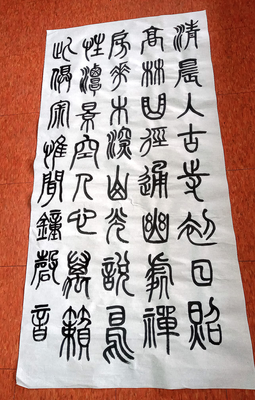 清晨入古寺初日照
高林曲徑通幽處禪
房華木深山光說鳥
性潭景空人心萬籟
此俱寂惟聞鐘磬音